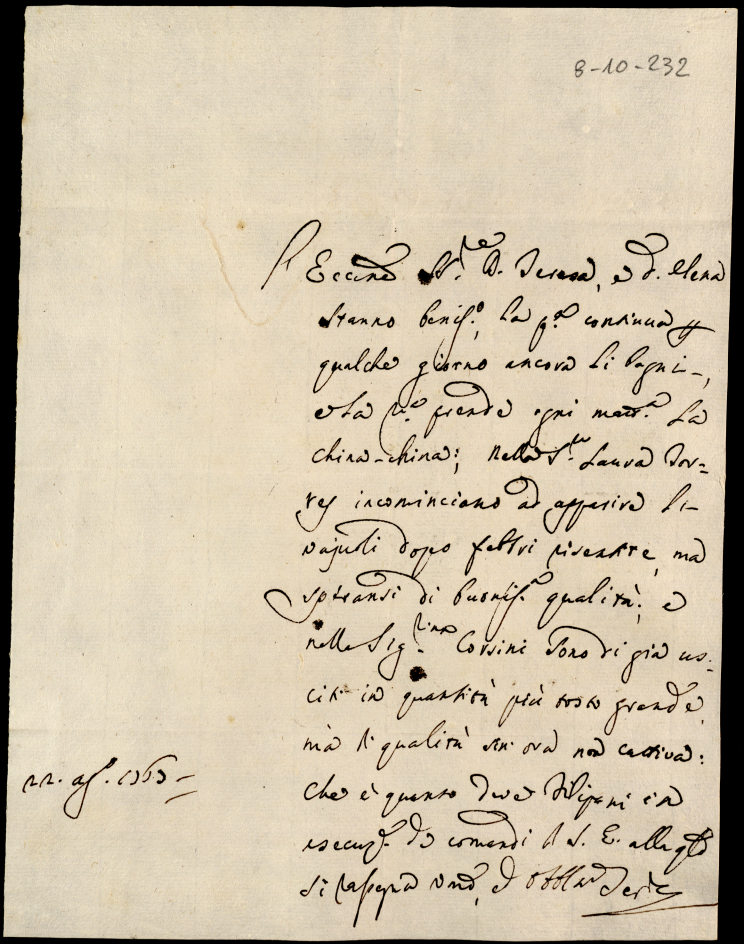 8-10-232
Eccme Sig.re D. Teresa, e D. Elena
stanno benis.o, la p.a continua p
qualche giorno ancora li bagni,
e la 2.a prende ogni matt.a la
china-china; nella S.ra Laura Tor-
res incominciano ad apparire li
vajuoli dopo febbri risentite, ma
speransi di buonis.a qualità; e
nella Sig.rina Corsini sono di già us-
citi in quantità più tosto grande,
mà di qualità sin ora non cattiva:
che è quanto deve in
esecuz.e de comandi di S. E. alla qle
si rassegna um.o, ed obbl.mo Ser.e
22. ag.o 1763